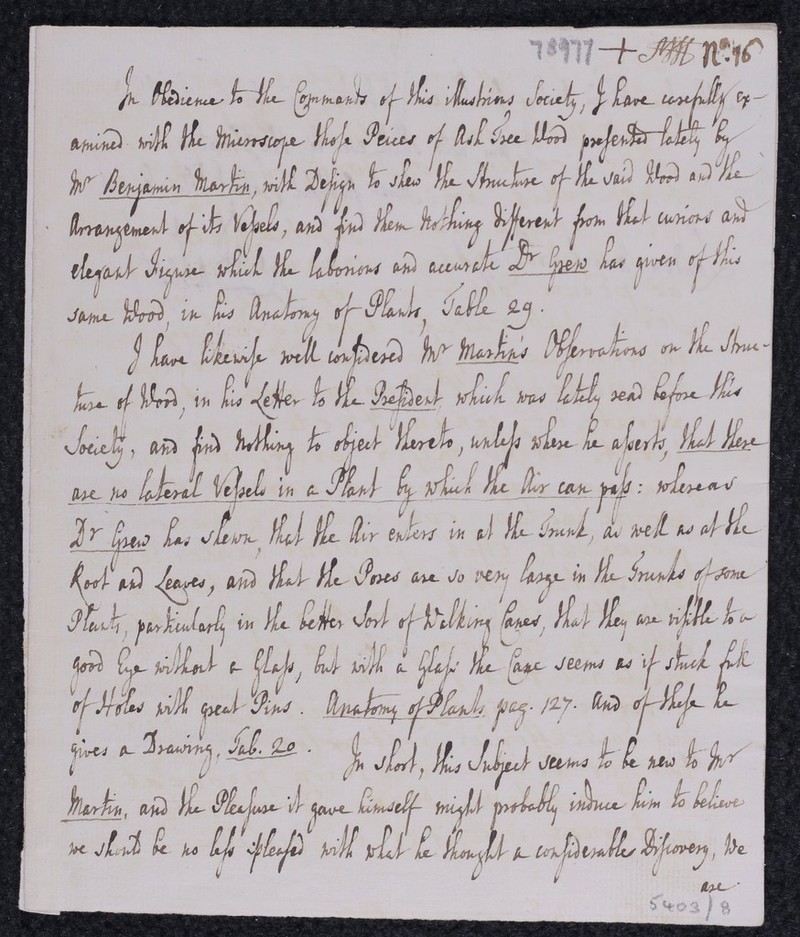 78977 + Nº. 16
In Obedience to the Commands of this illustrious Society, I have carefully ex-
amined with the Microscope those Peices of Ash Tree Wood presented lately by
Mr Benjamin Martin, with Design to shew the Structure of the said Wood and the
Arrangement of its Vessels, and find them Nothing different from that curious and
elegant Figure which the laborious and accurate Dr Grew has given of this
same Wood, in his Anatomy of Plants, Table 29.
I have likewise well considered Mr Martin's Observations on the Struc-
ture of Wood, in his Letter to the President, which was lately read before this
Society, and find Nothing to object thereto, unless where he asserts, that there
are no lateral Vessels in a Plant by which the Air can pass: whereas
Dr Grew has shewn, that the Air enters in at the Trunk, as well as at the
Root and Leaves, and that the Pores are so very large in the Trunks of some
Plants, particularly in the better Sort of Walking Canes, that they are visible to a
good Eye without a Glass, but with a Glass the Cane seems as if stuck full
of Holes with great Pins. Anatomy of Plants pag. 127. And of these he
gives a Drawing, Tab. 20. In short, this Subject seems to be new to Mr
Martin, and the Pleasure it gave himself might probably induce him to believe
we should be no less pleased with what he thought a considerable Discovery, We
are
5403/8